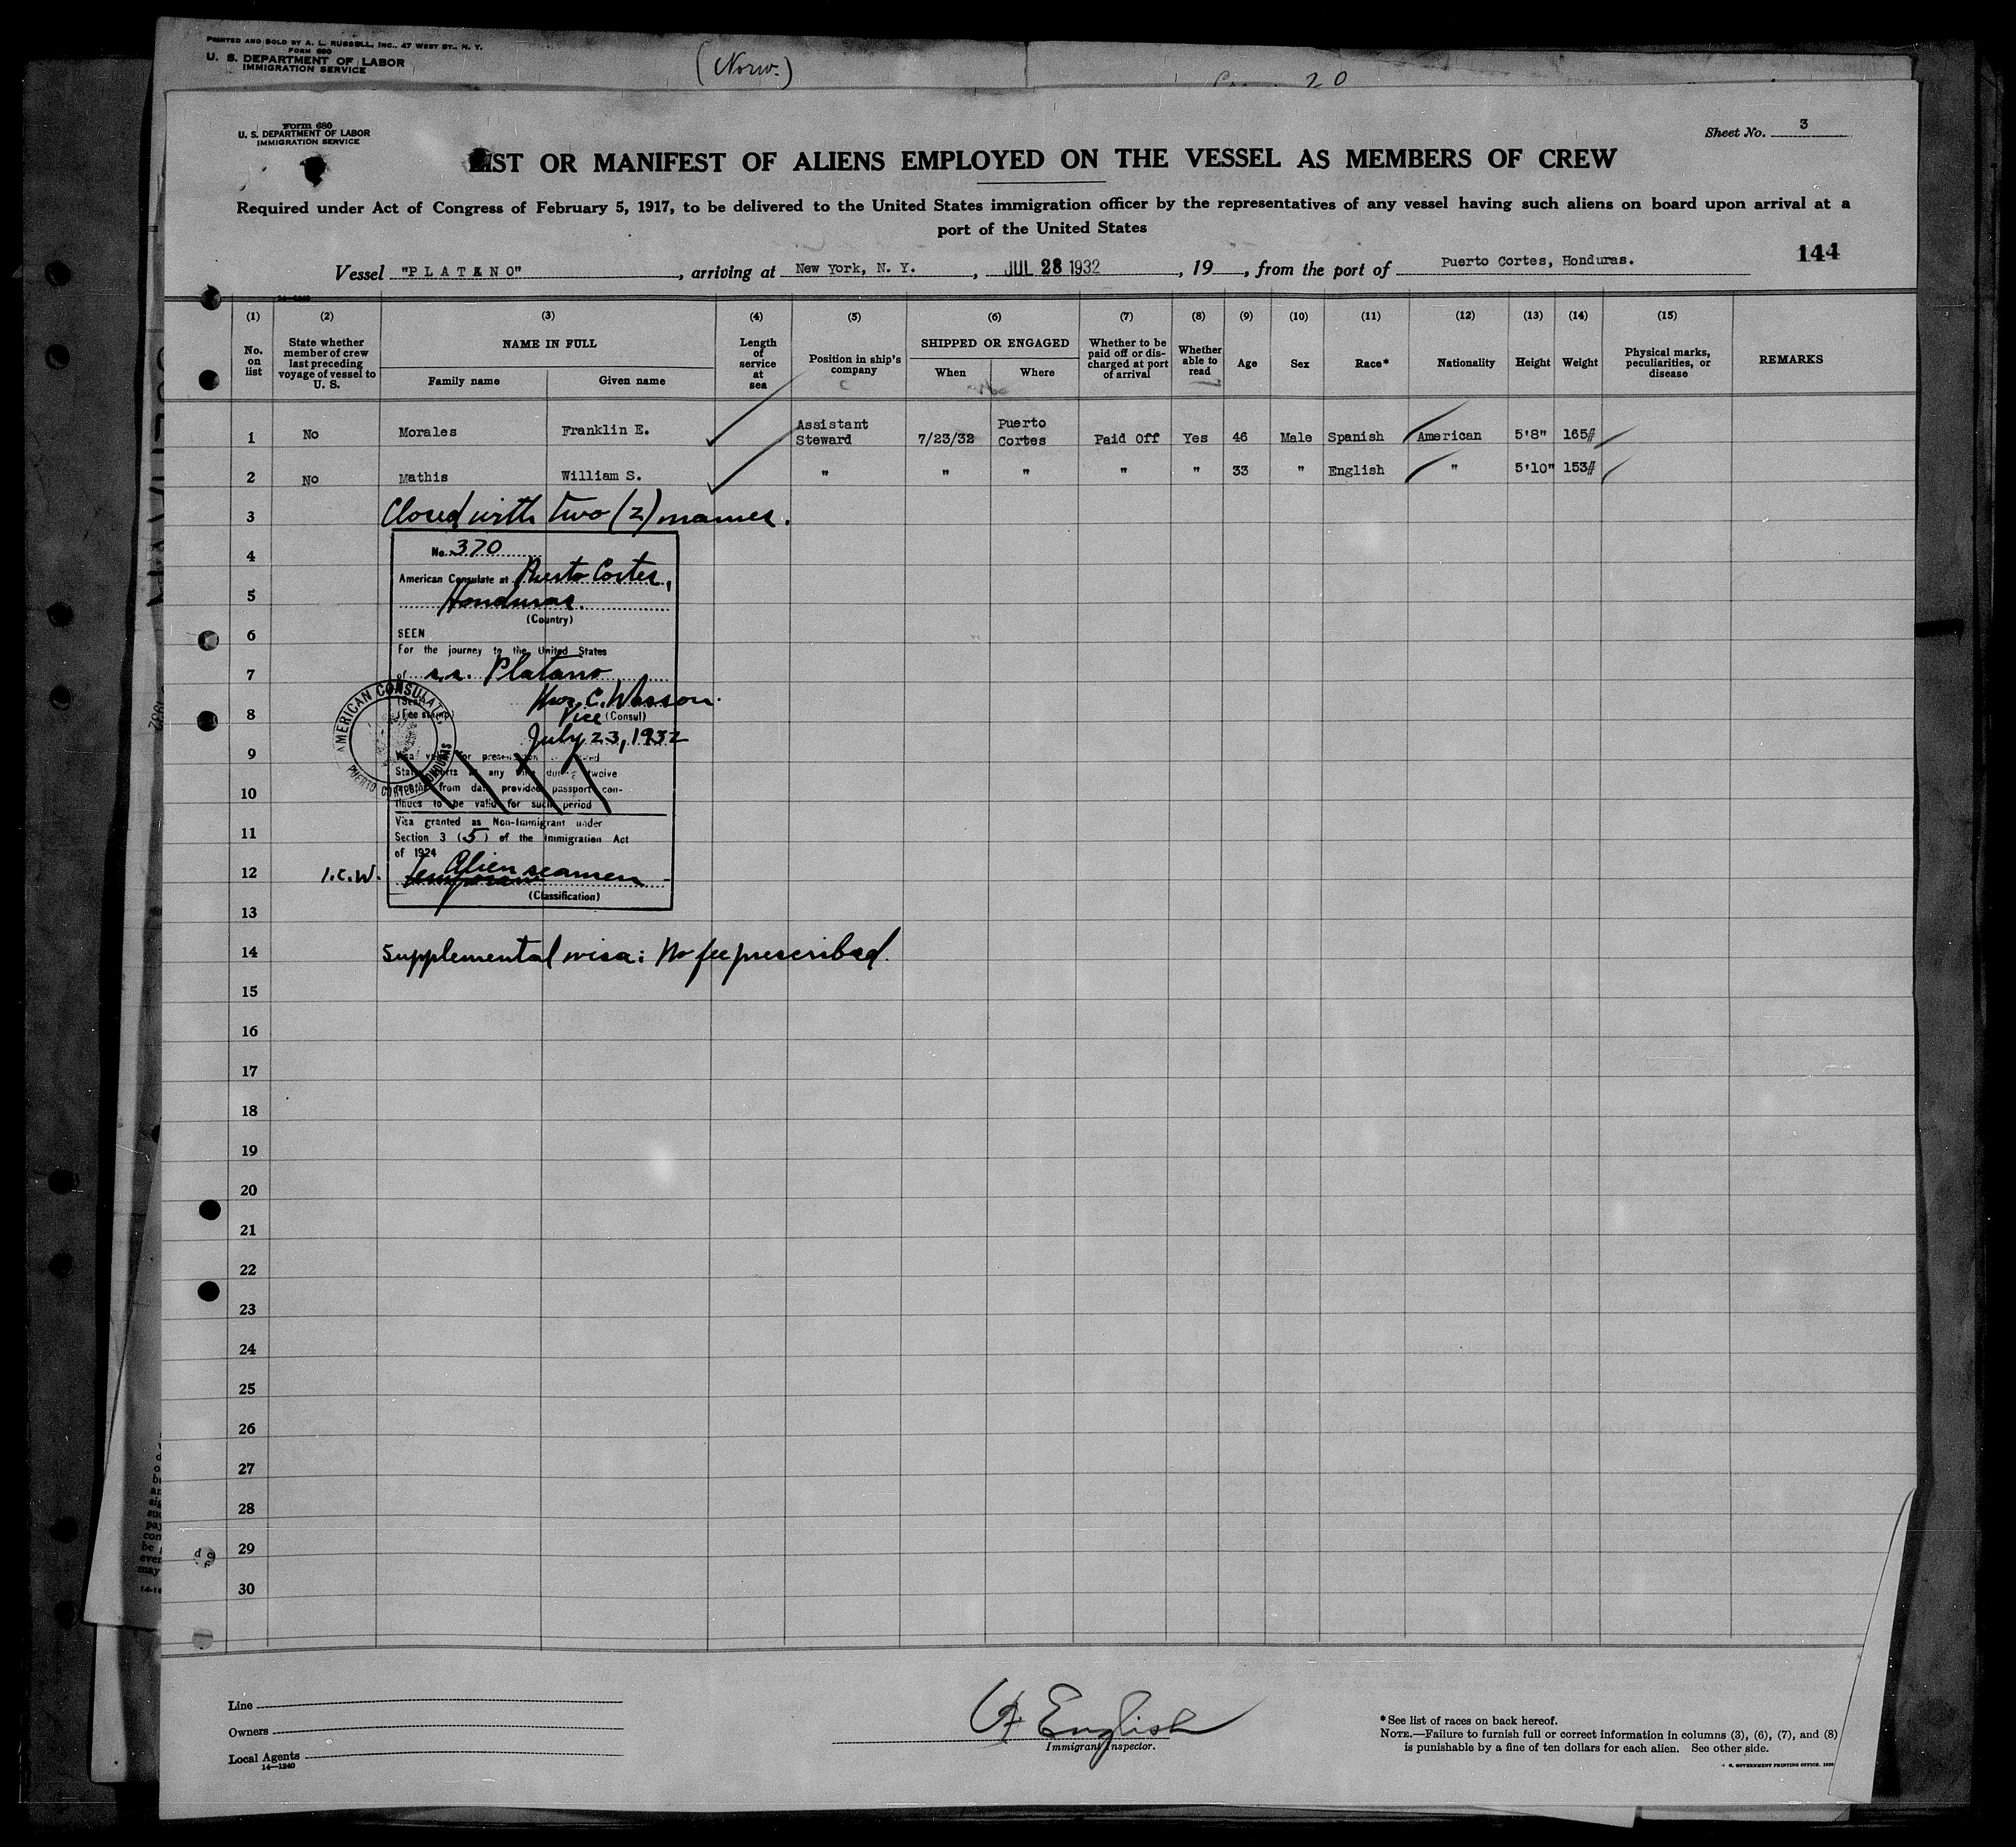 PRINTED AND SOLD BY A. L. RUSSELL, INC., 47 WEST ST., N. Y.
FORM 680
U. S. DEPARTMENT OF LABOR
IMMIGRATION SERVICE
(Norw.)
20
Form 680
U. S. DEPARTMENT OF LABOR
IMMIGRATION SERVICE
Sheet No. 3
LIST OR MANIFEST OF ALIENS EMPLOYED ON THE VESSEL AS MEMBERS OF CREW
Required under Act of Congress of February 5, 1917, to be delivered to the United States immigration officer by the representatives of any vessel having such aliens on board upon arrival at a
port of the United States
144
Vessel "PLATANO", arriving at New York, N. Y., JUL 28 1932, 19, from the port of Puerto Cortes, Honduras.
(1) (2) (3) (4) (5) (6) (7) (8) (9) (10) (11) (12) (13) (14) (15)
No. on list
State whether member of crew last preceding voyage of vessel to U. S.
NAME IN FULL
Family name
Given name
Length of service at sea
Position in ship's company
SHIPPED OR ENGAGED
When
Where
Whether to be paid off or discharged at port of arrival
Whether able to read
Age
Sex
Race*
Nationality
Height
Weight
Physical marks, peculiarities, or disease
REMARKS
1 No Morales Franklin E. Assistant Steward 7/23/32 Puerto Cortes Paid Off Yes 46 Male Spanish American 5'8" 165#
2 No Mathis William S. " " " " " 33 " English " 5'10" 153#
3 Closed with two (2) names.
4 No. 370
American Consulate at Puerto Cortes,
5 Honduras.
(Country)
6 SEEN
For the journey to the United States
7 of s.s. Platano
(Seal)
8 (Fee stamp) C. Wasson.
Vice (Consul)
July 23, 1932
AMERICAN CONSULATE
PUERTO CORTES, HONDURAS
9 Visa valid for presentation at United
States ports at any time during twelve
10 months from date provided passport con-
tinues to be valid for such period
Visa granted as Non-Immigrant under
11 Section 3 (5) of the Immigration Act
of 1924
12 I.C.W. Alien seamen
(Classification)
13
14 Supplemental visa: No fee prescribed.
15
16
17
18
19
20
21
22
23
24
25
26
27
28
29
30
Line
Owners
Local Agents
14—1240
English
Immigrant Inspector.
*See list of races on back hereof.
NOTE.—Failure to furnish full or correct information in columns (3), (6), (7), and (8)
is punishable by a fine of ten dollars for each alien. See other side.
GOVERNMENT PRINTING OFFICE